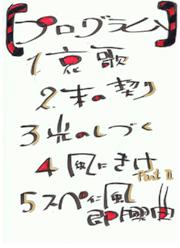 [プログラム]
1.哀歌
2.末の契り
3 光のしづく
4 風にきけ Part II
5 スペイン風即興曲